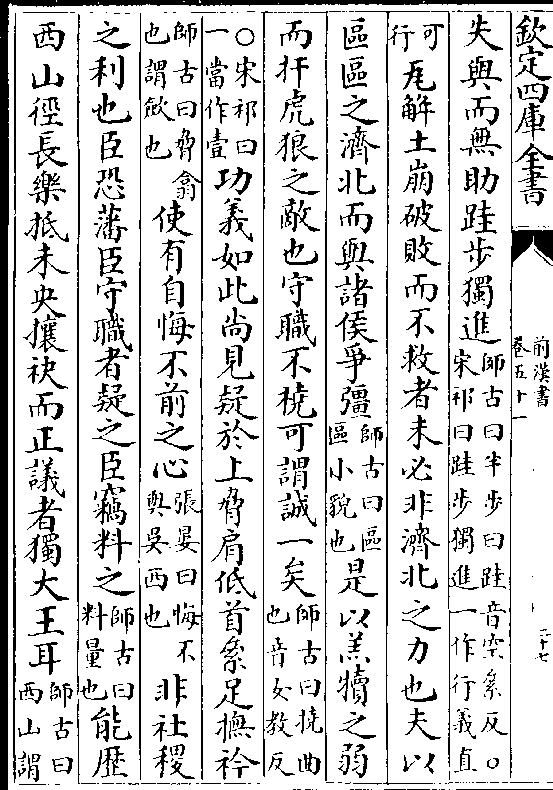 欽定四庫全書
前漢書
卷五十一
二十七
失與而無助跬步獨進師古曰半步曰跬音空絫反○宋祁曰跬步獨進一作行義直
可行瓦解土崩破敗而不救者未必非濟北之力也夫以
區區之濟北而與諸侯爭彊師古曰區區小貌也是以羔犢之弱
而扞虎狼之敵也守職不橈可謂誠一矣師古曰橈曲也音女教反
○宋祁曰一當作壹功義如此尚見疑於上脅肩低首絫足撫衿
師古曰脅翕也謂斂也使有自悔不前之心張晏曰悔不與吳西也非社稷
之利也臣恐藩臣守職者疑之臣竊料之師古曰料量也能歴
西山徑長樂抵未央攘袂而正議者獨大王耳師古曰西山謂